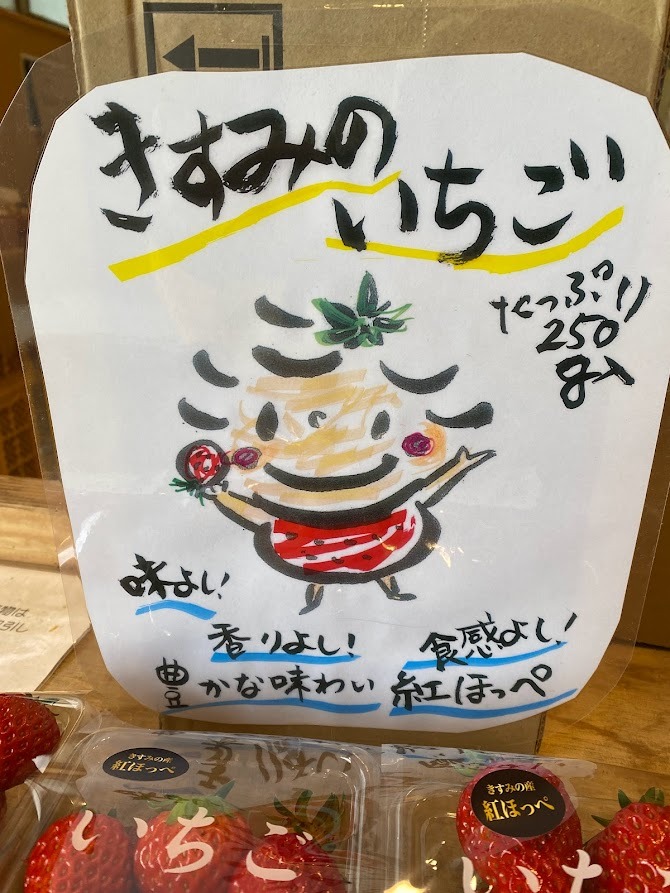 きすみの
いちご
たっぷり
250
g入
味よし!
香りよし!
食感よし!
豊かな味わい 紅ほっぺ
きすみの産
紅ほっぺ
いちご
きすみの産
紅ほっぺ
いち